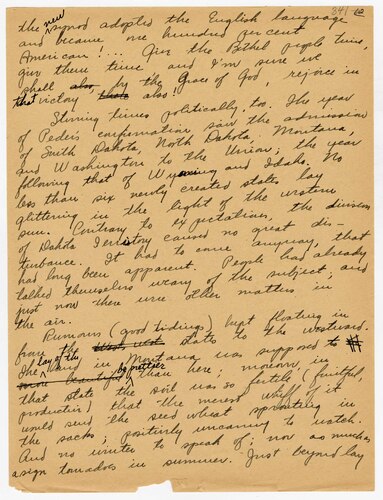 341 60
the new synod adopted the English language
and became one hundred per cent
American!... Give the Bethel people time,
give them time and I'm sure we
shall also, by the Grace of God, rejoice in
that victory thats also!
Stirring times politically, too. The year
of Peder's confirmation saw the admission
of South Dakota, North Dakota, Montana,
and Washington to the Union; the year
following that of Wyoming and Idaho. No
less than six newly created states lay
glittering in the light of the western
sun. Contrary to expectations, the division
of Dakota Territory caused no great dis-
turbance. It had to come anyway, that
had long been apparent. People had already
talked themselves weary of the subject; and
just now there were other matters in
the air.
Rumors (good tidings) kept floating in
from the states to the westward.
The lay of the land in Montana was supposed to
more beautiful be prettier than here; moreover, in
that state the soil was so fertile (fruitful,
productive) that the merest whiff of it
would send the seed wheat sprouting in
the sacks; positively uncanny to watch.
And no winter to speak of; nor as much as
a sign tornadoes in summer. Just beyond lay